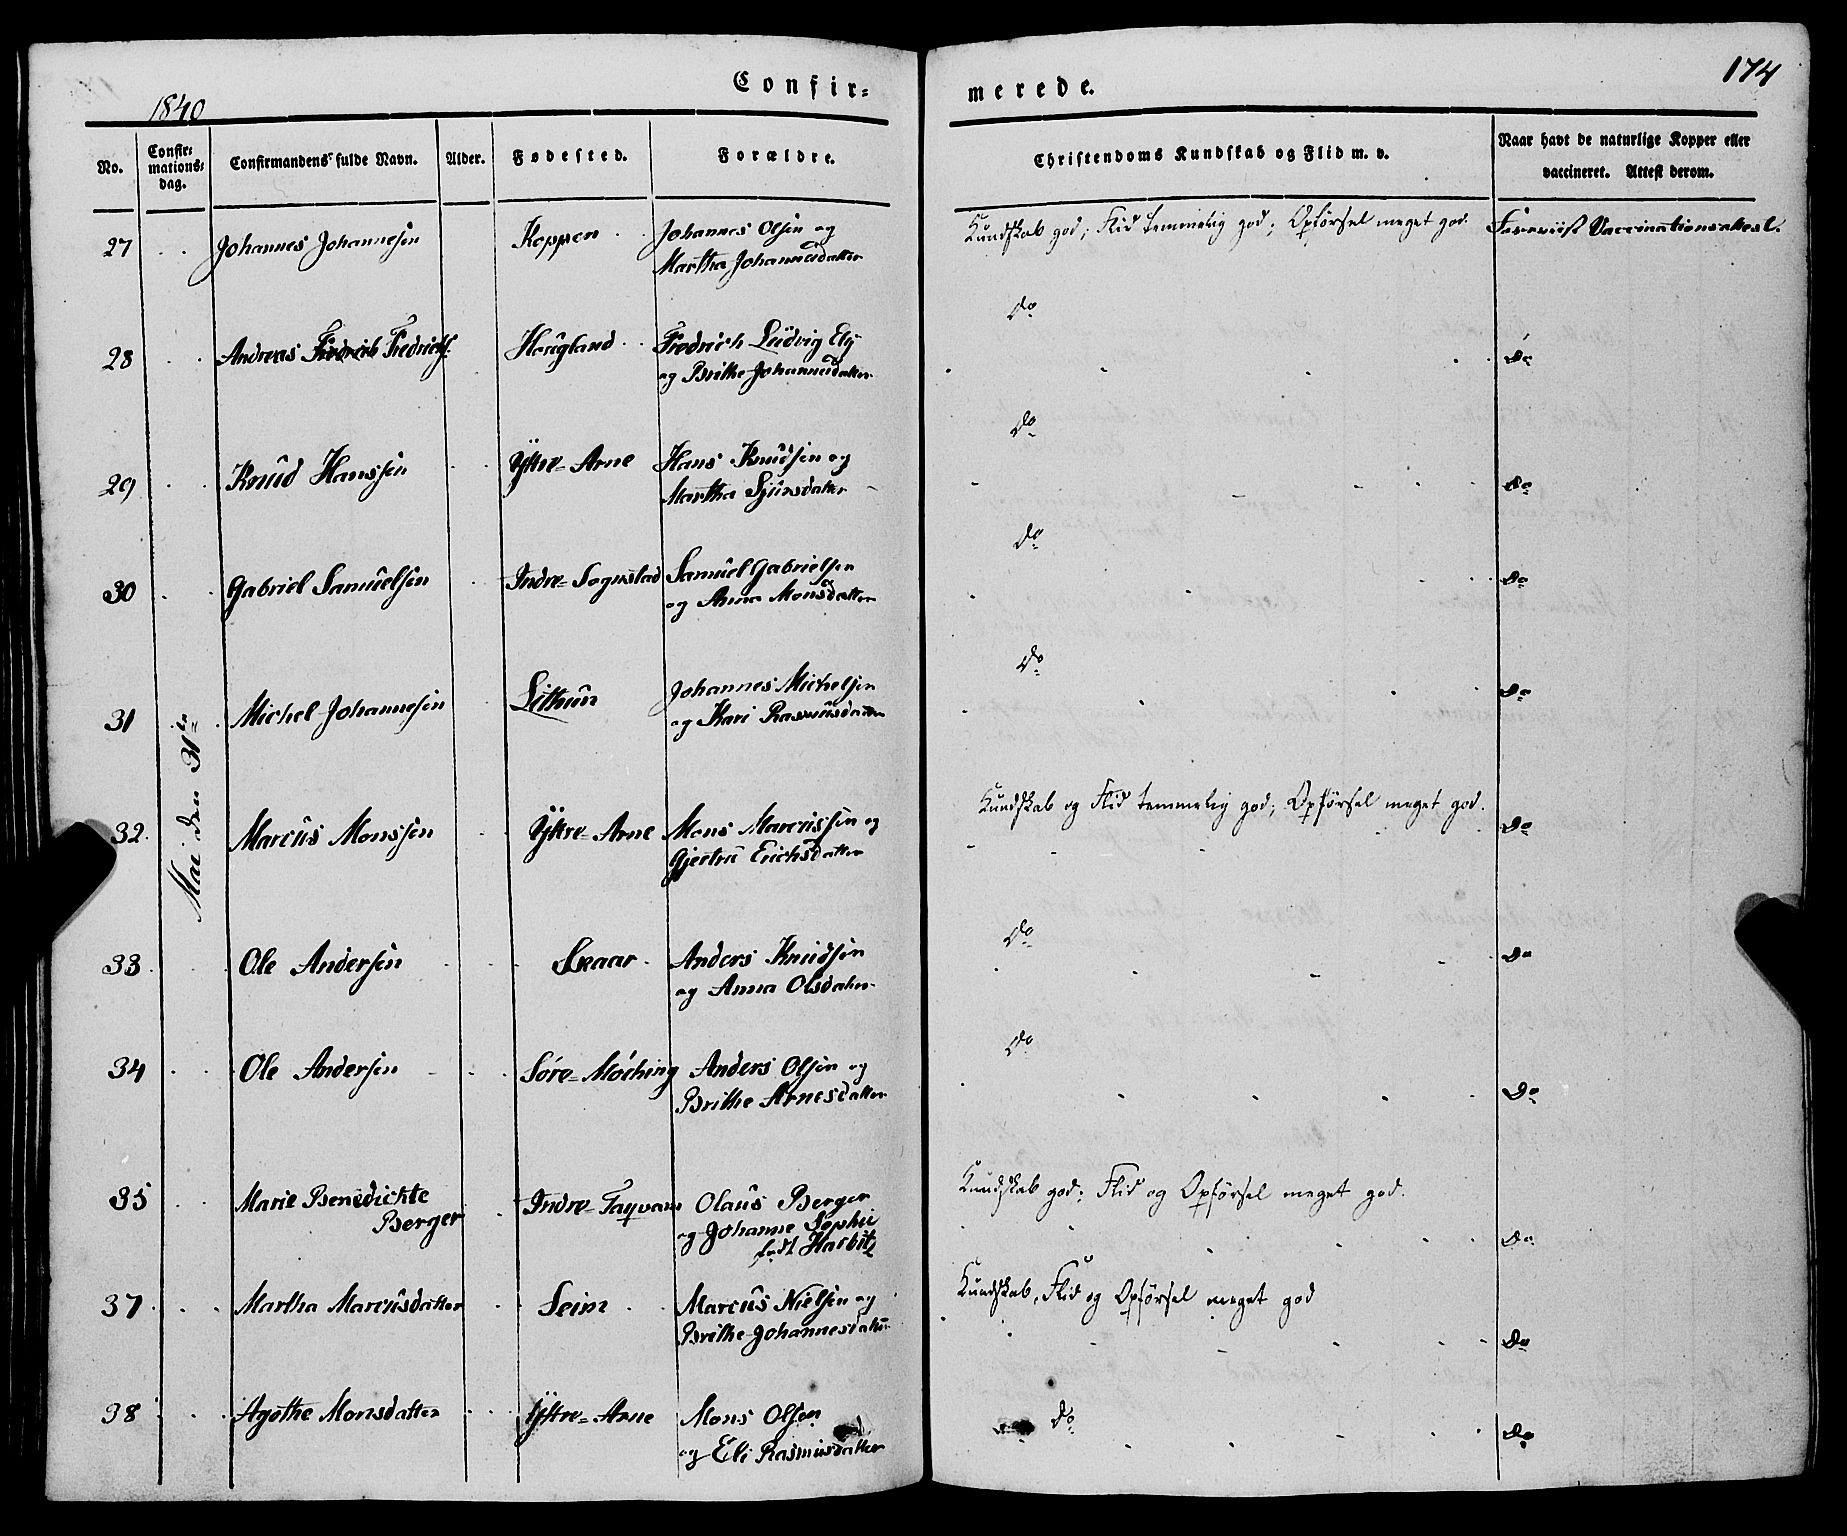 174
Confir= merede.
1840
No.
Confir=
mations=
dag.
Confirmandens fulde Navn.
Alder.
Fødested.
Forældre.
Christendoms Kundskab og Flid m. v.
Naar havt de naturlige Kopper eller
vaccineret. Attest derom.
Mai den 31te
27 Johannes Johannesen Koppen Johannes Olsen og Kundskab god; Flid temmelig god; Opførsel meget god. Foreviist Vaccinationsattest.
Martha Johannesdatter
28 Andreas Fredrich Fredrichs. Hougland Fredrich Ludvig Ely do do
og Brithe Johannesdatter
29 Knud Hanssen Ÿttre-Arne Hans Knudsen og do do
Martha Sjursdatter
30 Gabriel Samuelsen Indre-Sognstad Samuel Gabrielsen do do
og Anna Monsdatter
31 Michel Johannesen Lithun Johannes Michelsen do do
og Kari Rasmusdatter
32. Marcus Monssen Ÿttre-Arne Mons Marcussen og Kundskab og Flid temmelig god; Opførsel meget god. do
Gjertru Erichsdatter
33 Ole Andersen Skaar Anders Knudsen do do
og Anna Olsdatter
34 Ole Andersen Søre-Møching Anders Olsen og do do
Brithe Arnesdatter
35 Marie Benedichte Indre- Olaus Berger Kundskab god; Flid og Opførsel meget god. do
Berger og Johanne Sophie
født Harbitz
37 Martha Marcusdatter Seim Marcus Nielsen og Kundskab, Flid og Opførsel meget god do
Brithe Johannesdatter
38 Agathe Monsdatter Ÿttre-Arne Mons Olsen do do
og Eli Rasmusdatter